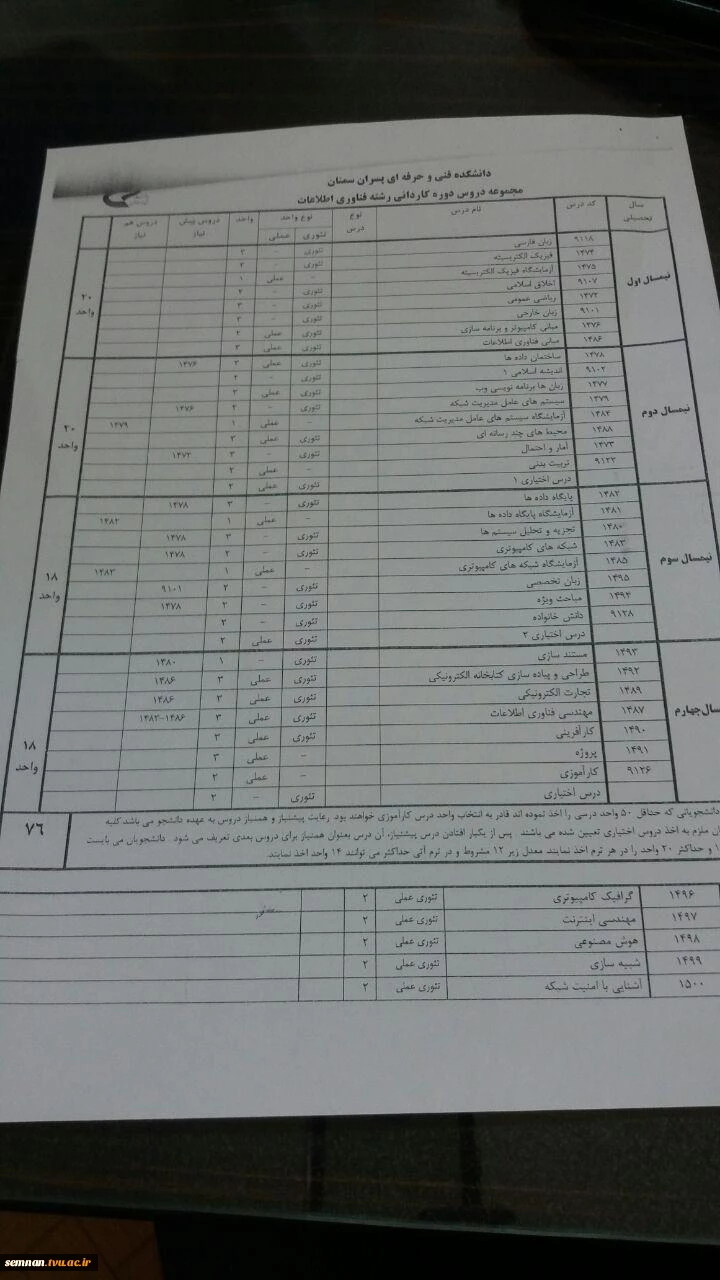 دانشکده فنی و حرفه ای پسران سمنان
مجموعه دروس دوره کاردانی رشته فناوری اطلاعات
سال تحصیلی کد درس نام درس نوع درس نوع واحد واحد دروس پیش نیاز دروس هم نیاز
تئوری عملی
نیمسال اول
۹۱۱۸ زبان فارسی تئوری - ۳
۱۴۷۴ فیزیک الکتریسیته تئوری - ۲
۱۴۷۵ آزمایشگاه فیزیک الکتریسیته - عملی ۱
۹۱۰۷ اخلاق اسلامی تئوری - ۲
۱۴۷۲ ریاضی عمومی تئوری - ۳
۹۱۰۱ زبان خارجی تئوری - ۳
۱۴۷۶ مبانی کامپیوتر و برنامه سازی تئوری عملی
۱۴۸۶ مبانی فناوری اطلاعات تئوری عملی ۳
۲۰ واحد
نیمسال دوم
۱۴۷۸ ساختمان داده ها تئوری عملی ۳ ۱۴۷۶
۹۱۰۲ اندیشه اسلامی ۱ تئوری - ۲
۱۴۷۷ زبان ها برنامه نویسی وب تئوری عملی ۳
۱۴۷۹ سیستم های عامل مدیریت شبکه تئوری - ۲ ۱۴۷۶
۱۴۸۴ آزمایشگاه سیستم های عامل مدیریت شبکه - عملی ۱ ۱۴۷۹
۱۴۸۸ محیط های چند رسانه ای تئوری عملی ۳
۱۴۷۳ آمار و احتمال تئوری - ۳ ۱۴۷۲
۹۱۲۲ تربیت بدنی - عملی ۲
درس اختیاری ۱ تئوری عملی ۲
۲۰ واحد
نیمسال سوم
۱۴۸۲ پایگاه داده ها تئوری - ۳ ۱۴۷۸
۱۴۸۱ آزمایشگاه پایگاه داده ها - عملی ۱ ۱۴۸۲
۱۴۸۰ تجزیه و تحلیل سیستم ها تئوری - ۳ ۱۴۷۸
۱۴۸۳ شبکه های کامپیوتری تئوری - ۲ ۱۴۷۸
۱۴۸۵ آزمایشگاه شبکه های کامپیوتری - عملی ۱ ۱۴۸۳
۱۴۹۵ زبان تخصصی تئوری - ۲ ۹۱۰۱
۱۴۹۴ مباحث ویژه تئوری - ۲ ۱۴۷۸
۹۱۲۸ دانش خانواده تئوری - ۲
درس اختیاری ۲ تئوری عملی ۲
۱۸ واحد
سال چهارم
۱۴۹۳ مستند سازی تئوری - ۱ ۱۴۸۰
۱۴۹۲ طراحی و پیاده سازی کتابخانه الکترونیکی تئوری عملی ۳ ۱۴۸۶
۱۴۸۹ تجارت الکترونیکی تئوری عملی ۳ ۱۴۸۶
۱۴۸۷ مهندسی فناوری اطلاعات تئوری عملی ۳ ۱۴۸۶-۱۴۸۲
۱۴۹۰ کارآفرینی تئوری عملی ۳
۱۴۹۱ پروژه - عملی ۳
۹۱۲۶ کارآموزی - عملی ۲
درس اختیاری تئوری - ۲
۱۸ واحد
دانشجویانی که حداقل ۵۰ واحد درسی را اخذ نموده اند قادر به انتخاب واحد درس کارآموزی خواهند بود. رعایت پیشنیاز و همنیاز دروس به عهده دانشجو می باشد.کلیه
ملزم به اخذ دروس اختیاری تعیین شده می باشند . پس از یکبار افتادن درس پیشنیاز، آن درس بعنوان همنیاز برای دروس بعدی تعریف می شود . دانشجویان می بایست
و حداکثر ۲۰ واحد را در هر ترم اخذ نمایند. معدل زیر ۱۲ مشروط و در ترم آتی حداکثر می توانند ۱۴ واحد اخذ نمایند.
۷۶
۱۴۹۶ گرافیک کامپیوتری تئوری عملی ۲
۱۴۹۷ مهندسی اینترنت تئوری عملی ۲
۱۴۹۸ هوش مصنوعی تئوری عملی ۲
۱۴۹۹ شبیه سازی تئوری عملی ۲
۱۵۰۰ آشنایی با امنیت شبکه تئوری عملی ۲
semnan.tvu.ac.ir